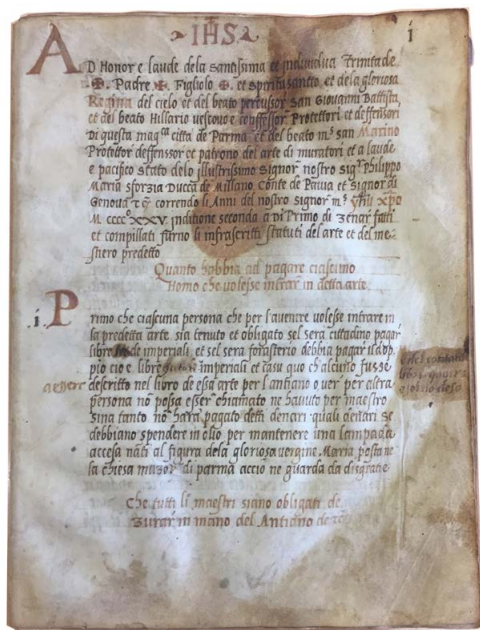 IHS
i
AD Honor e laude dela santissima et individua Trinita de
Padre Figliolo et spiritu santto et dela gloriosa
Regina del cielo et del beato percursor San Giovanni Battista,
et del beato Hillario vescovo e conffessor Protettori et deffensori
Di questa mag.ca citta de Parma et del beato m.s san Marino
Protettor deffenssor et patrono del arte di muratori et a laude
e pacifico stato delo illustrissimo Signor nostro sig.r Philippo
Maria sforzia Ducca de Millano Conte de Pavia et Signor di
Genova correndo li Anni del nostro signor m.s xpo
M. cccc.o XXV inditione seconda a di Primo di zenar fatti
et compillati furno li infrascritti statuti del arte et del me-
stiero predetto
Quanto habbia ad pagare ciascuno
Homo che volesse intrar in detta arte.
.i. Primo che ciascuna persona che per l'avenire volesse intrare in
la predetta arte sia tenuto et obligato sel sera cittadino pagar
libre de imperiali, et sel sera forastiero debbia pagar il dop-
pio cio e libre imperiali et casu quo ch'alcuno fusse
descritto nel libro de essa arte per l'antiano o ver per altra
persona nõ possa esser chiamato ne havuto per maestro
sina tanto nõ hara pagato detti denari quali denari se
debbiano spendere in olio per mantenere una lampada
accesa nãti al figura dela gloriosa vergine Maria posta ne
la chiesa di parma accio ne guarda da disgratie
Che tutti li maestri siano obligati de
zurar in mano del Antiano de